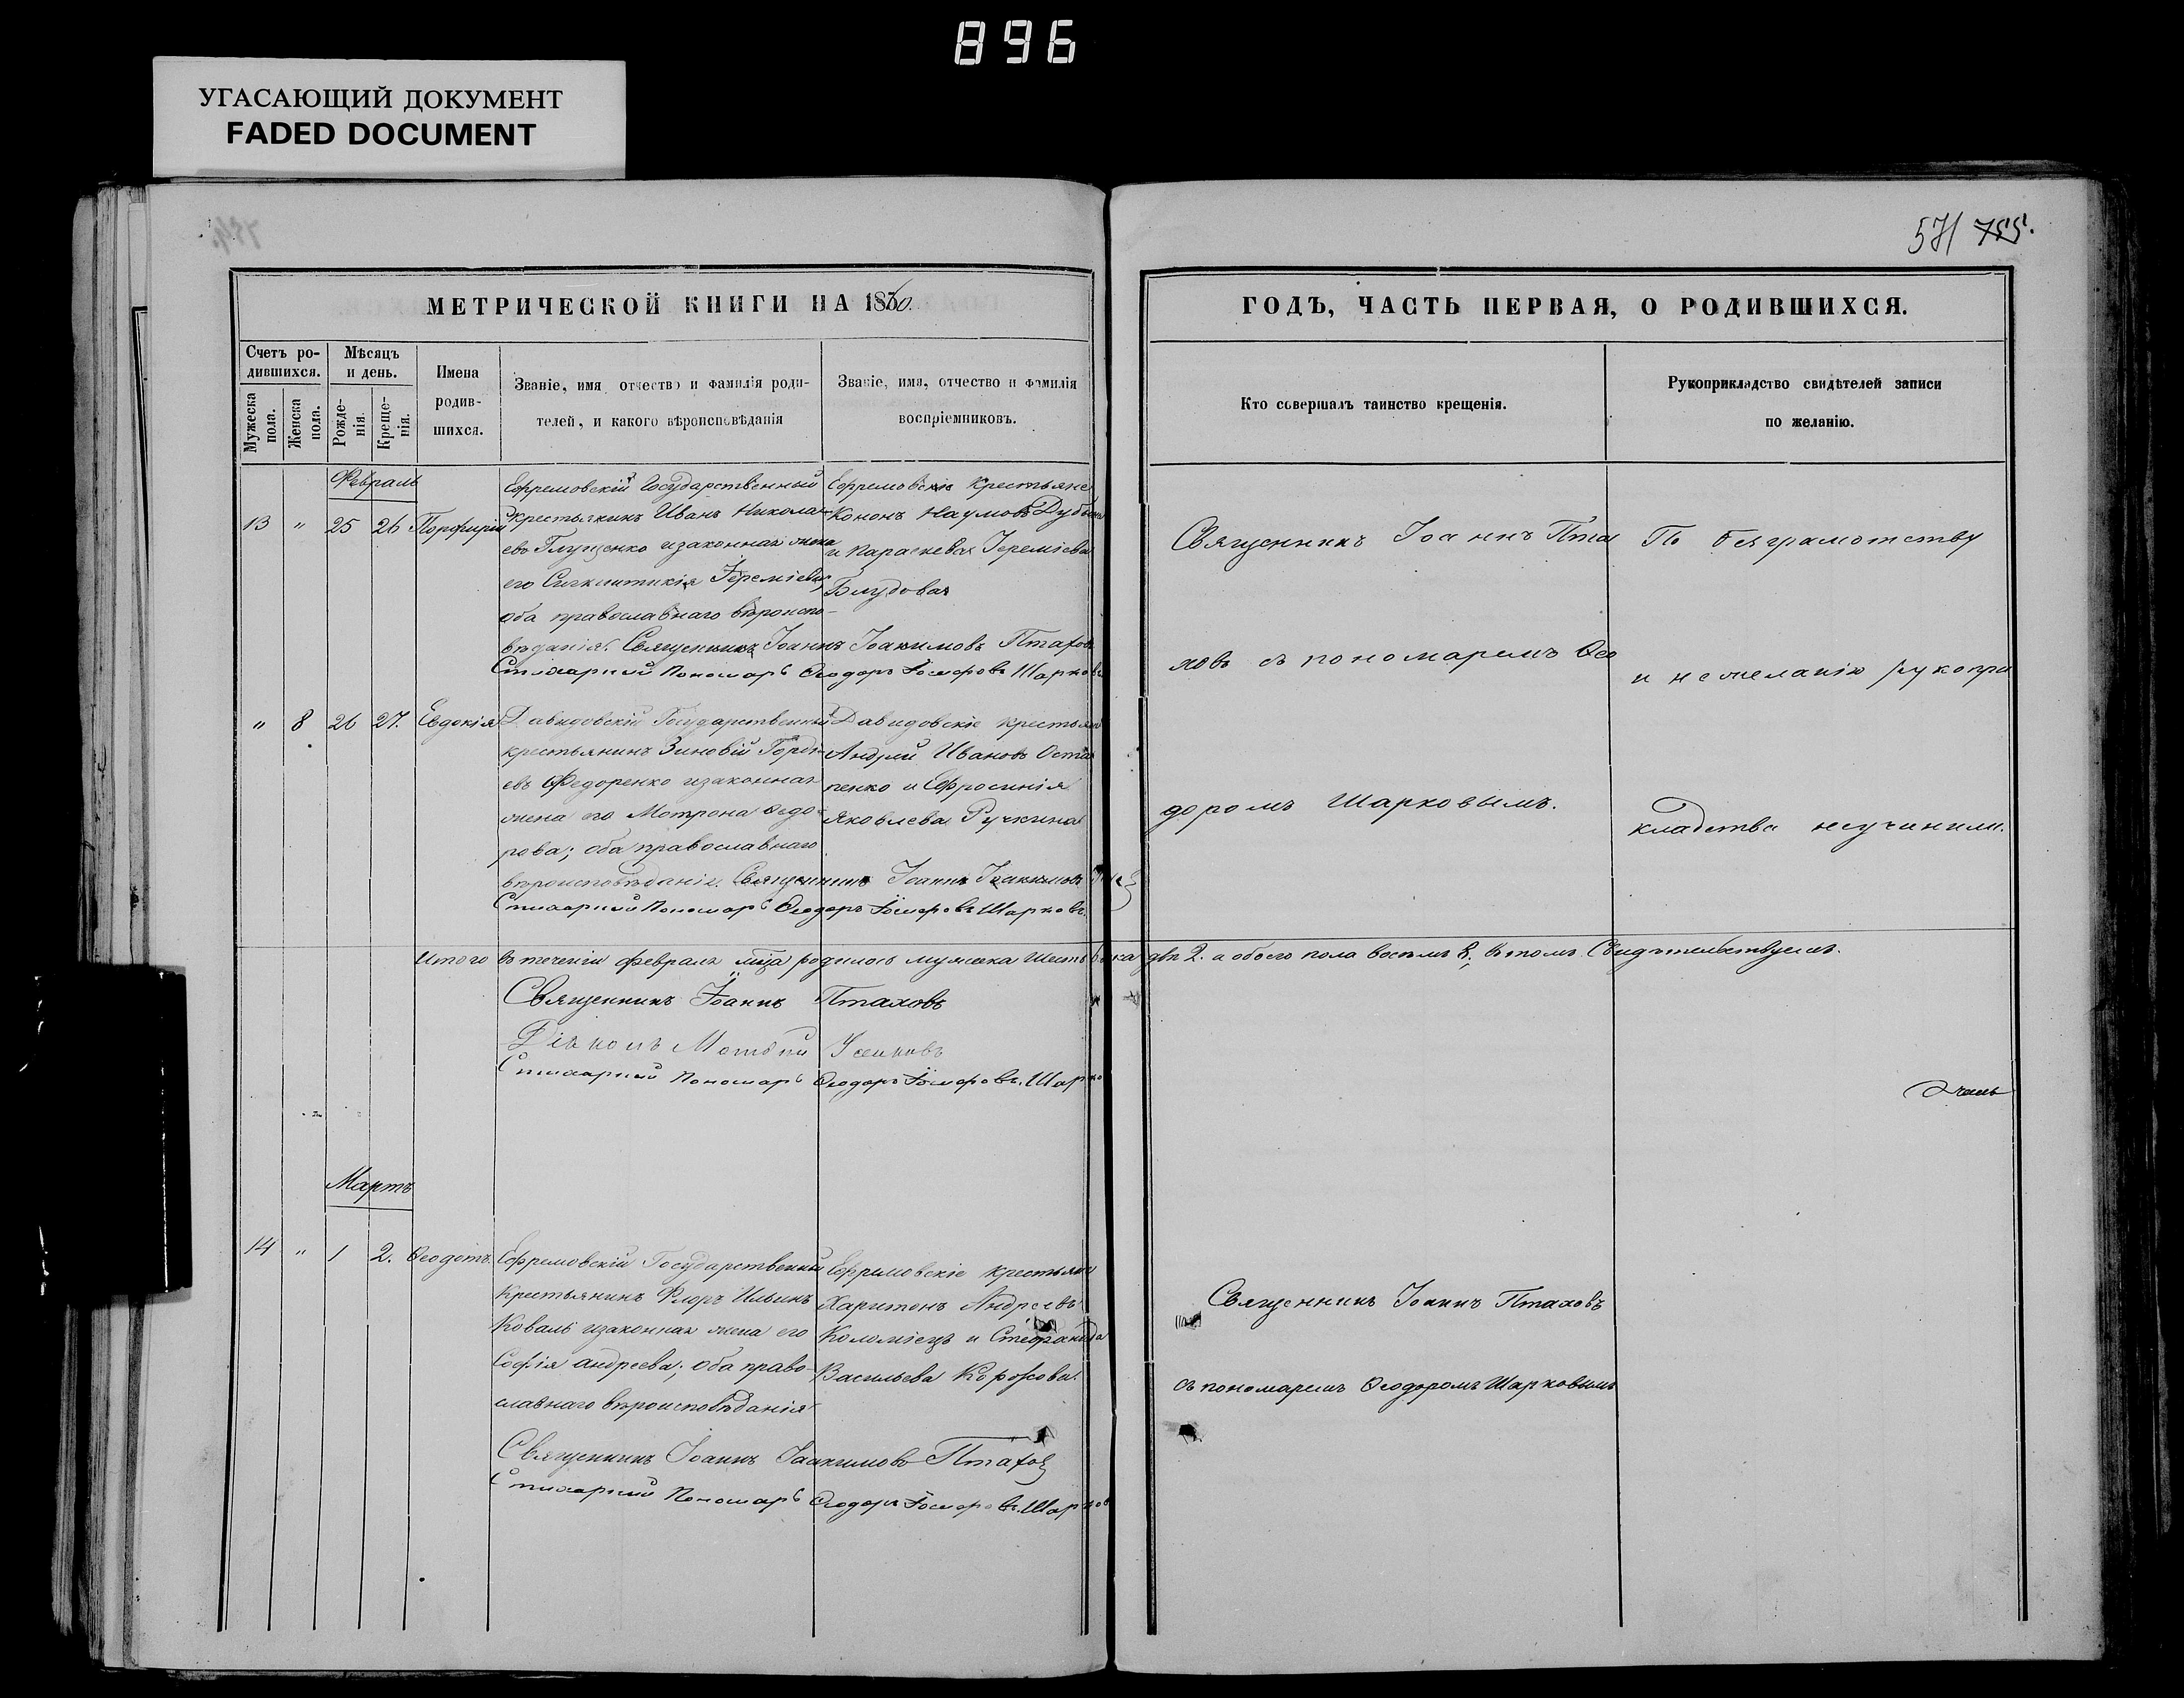 896
УГАСАЮЩИЙ ДОКУМЕНТ
FADED DOCUMENT
571 755.
МЕТРИЧЕСКОЙ КНИГИ НА 1860.
ГОДЪ, ЧАСТЬ ПЕРВАЯ, О РОДИВШИХСЯ.
Счетъ ро-
дившихся.
Мужеска
пола.
Женска
пола.
Мѣсяцъ
и день.
Рожде-
нія.
Креще-
нія.
Имена
родив-
шихся.
Званіе, имя отчество и фамилія роди-
телей, и какого вѣроисповѣданія
Званіе, имя, отчество и фамилія
воспріемниковъ.
Кто совершалъ таинство крещенія.
Рукоприкладство свидѣтелей записи
по желанію.
Февраль
13 " 25 26 Порфирій
Ефремовскій Государственный
крестьянинъ Иванъ Никола-
евъ Глущенко изаконная жена
его Сигклитикія Іереміева
оба православнаго вѣроиспо-
вѣданія. Священникъ Іоаннъ Іоакимовъ Птаховъ
Стихарный Пономарь Ѳеодоръ Іосифовъ Шарковъ
Ефремовскіе Крестьяне
Кононъ Наумовъ
и Параскева Іереміева
Блудова
Священникъ Іоаннъ Пта
ховъ съ пономаремъ Ѳео
доромъ Шарковымъ.
По безграмотству
и нежеланію рукопри
кладства неучинили.
" 8 26 27. Евдокія
Давидовскій Государственный
крестьянинъ Зиновій Гордѣ-
евъ Федоренко изаконная
жена его Мотрона Ѳедо-
рова; оба православнаго
вѣроисповѣданія. Священникъ Іоаннъ Іоакимовъ
Стихарный Пономарь Ѳеодоръ Іосифовъ Шарковъ.
Давидовскіе крестьяне
Андрей Ивановъ Оста
пенко и Ефросинія
Яковлева Ручкина
Итого въ теченіи февраля мца родилось мужска шесть двѣ 2. а обоего пола восемь 8; Въ томъ Свидѣтельствуемъ.
Священникъ Іоаннъ Птаховъ
Діяконъ Матвѣй
Стихарный Пономарь Ѳеодоръ Іосифовъ Шарко
Мартъ
14 " 1 2. Ѳеодотъ
Ефремовскій Государственный
Крестьянинъ Флоръ Ильинъ
Коваль изаконная жена его
Софія андреева; оба право-
славнаго вѣроисповѣданія
Священникъ Іоаннъ Іаакимовъ Птаховъ
Стихарный Пономарь Ѳеодоръ Іосифовъ Шарков
Ефремовскіе крестьяне
Харитонъ Андреевъ
Коломіецъ и Стефанида
Васильева
Священникъ Іоаннъ Птаховъ
съ пономаремъ Ѳеодоромъ Шарковымъ